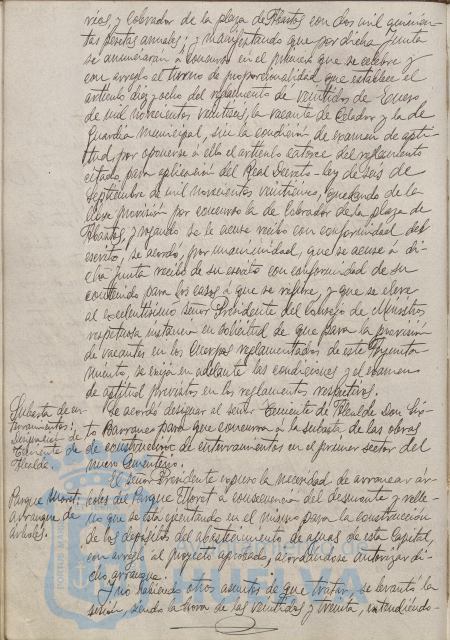 réas, y Cobrador de la plaza de Abastos con dos mil quinien-
tas pesetas anuales; y manifestando que por dicha Junta
se anunciarán a concurso en el primero que se celebre y
con arreglo al turno de proporcionalidad que establece el
artículo diez y ocho del reglamento de veintidos de Enero
de mil novecientos veintiseis, la vacante de Celador y la de
Guardia Municipal, sin la condición de examen de apti-
tud, por oponerse á ello el artículo catorce del reglamento
citado para aplicación del Real Decreto-ley de seis de
Septiembre de mil novecientos veinticinco, quedando de la
libre provisión por concurso la de Cobrador de la plaza de
Abastos, y rogando se le acuse recibo con conformidad del
escrito, se acordó, por unanimidad, que se acuse á di-
cha Junta recibo de su escrito con conformidad de su
contenido para los casos á que se refiere, y que se eleve
al excelentísimo Señor Presidente del Consejo de Ministros
respetuosa instancia en solicitud de que para la provisión
de vacantes en los Cuerpos reglamentados de este Ayunta-
miento, se exija en adelante las condiciones y el examen
de aptitud previstos en los reglamentos respectivos.
Subasta de en-
terramientos:
Designación de
Teniente de
Alcalde.
Se acordó designar al señor Teniente de Alcalde Don
to Barroso para que concurra a la subasta de las obras
de construcción de enterramientos en el primer sector del
nuevo Cementerio.
Parque Moret:
Arranque de
árboles.
El señor Presidente expuso la necesidad de arrancar ár-
boles del Parque Moret á consecuencia del desmonte y relle-
no que se está ejecutando en el mismo para la construcción
de los depósitos del abastecimiento de aguas de esta Capital,
con arreglo al proyecto aprobado, acordándose autorizar di-
cho arranque.
Y no habiendo otros asuntos de que tratar, se levantó la
sesión, siendo la hora de las veintidos y treinta, extendiéndo-
HUELVA